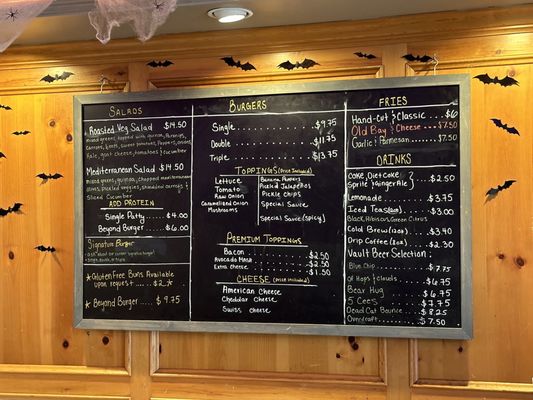 SALADS
Roasted Veg Salad $14.50
Mixed greens, topped with quinoa, Parsnips,
Carrots, Beets, sweet potatoes, Peppers, onions,
Kale, goat cheese, tomatoes & cucumber
Mediterranean Salad $14.50
mixed greens, quinoa, Chopped marinated
onions, sliced zucchini, shredded carrots &
sliced Cucumber
ADD PROTEIN
Single Patty ..... $4.00
Beyond Burger ..... $6.00
Signature Burger
Single, double, or triple
*Gluten Free Buns Available
upon request ..... $2*
*Beyond Burger .... $9.75
BURGERS
Single .......... $9.75
Double .......... $11.75
Triple .......... $13.75
TOPPINGS (Price Included)
Lettuce
Tomato
Raw Onion
Caramelized Onion
Mushrooms
Banana Peppers
Pickled Jalapeños
Pickle chips
Special Sauce
Special Sauce (Spicy)
PREMIUM TOPPINGS
Bacon .......... $2.50
Avocado Mash .......... $2.50
Extra cheese .......... $1.50
CHEESE (price included)
American Cheese
Cheddar Cheese
Swiss Cheese
FRIES
Hand-Cut & Classic ..... $6.00
Old Bay & Cheese ..... $7.50
Garlic & Parmesan ..... $7.50
DRINKS
Coke, Diet Coke,
Sprite & Ginger Ale ... $2.50
Lemonade .......... $3.75
Iced Teas (20oz) ..... $3.00
Black, Hibiscus, Green Citrus
Cold Brew (20oz) ..... $3.40
Drip Coffee (20oz) ... $2.30
Vault Beer Selection:
Blue Chip .......... $7.75
Of Hops & Clouds ..... $6.75
Bear Hug .......... $6.75
5 Cees .......... $7.75
Dead Cat Bounce ..... $8.25
Overdraft .......... $7.50